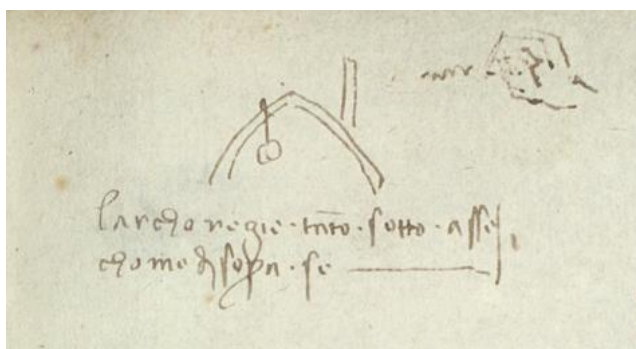 larcho regie · tāto · sotto · asse
chome di sopa · se